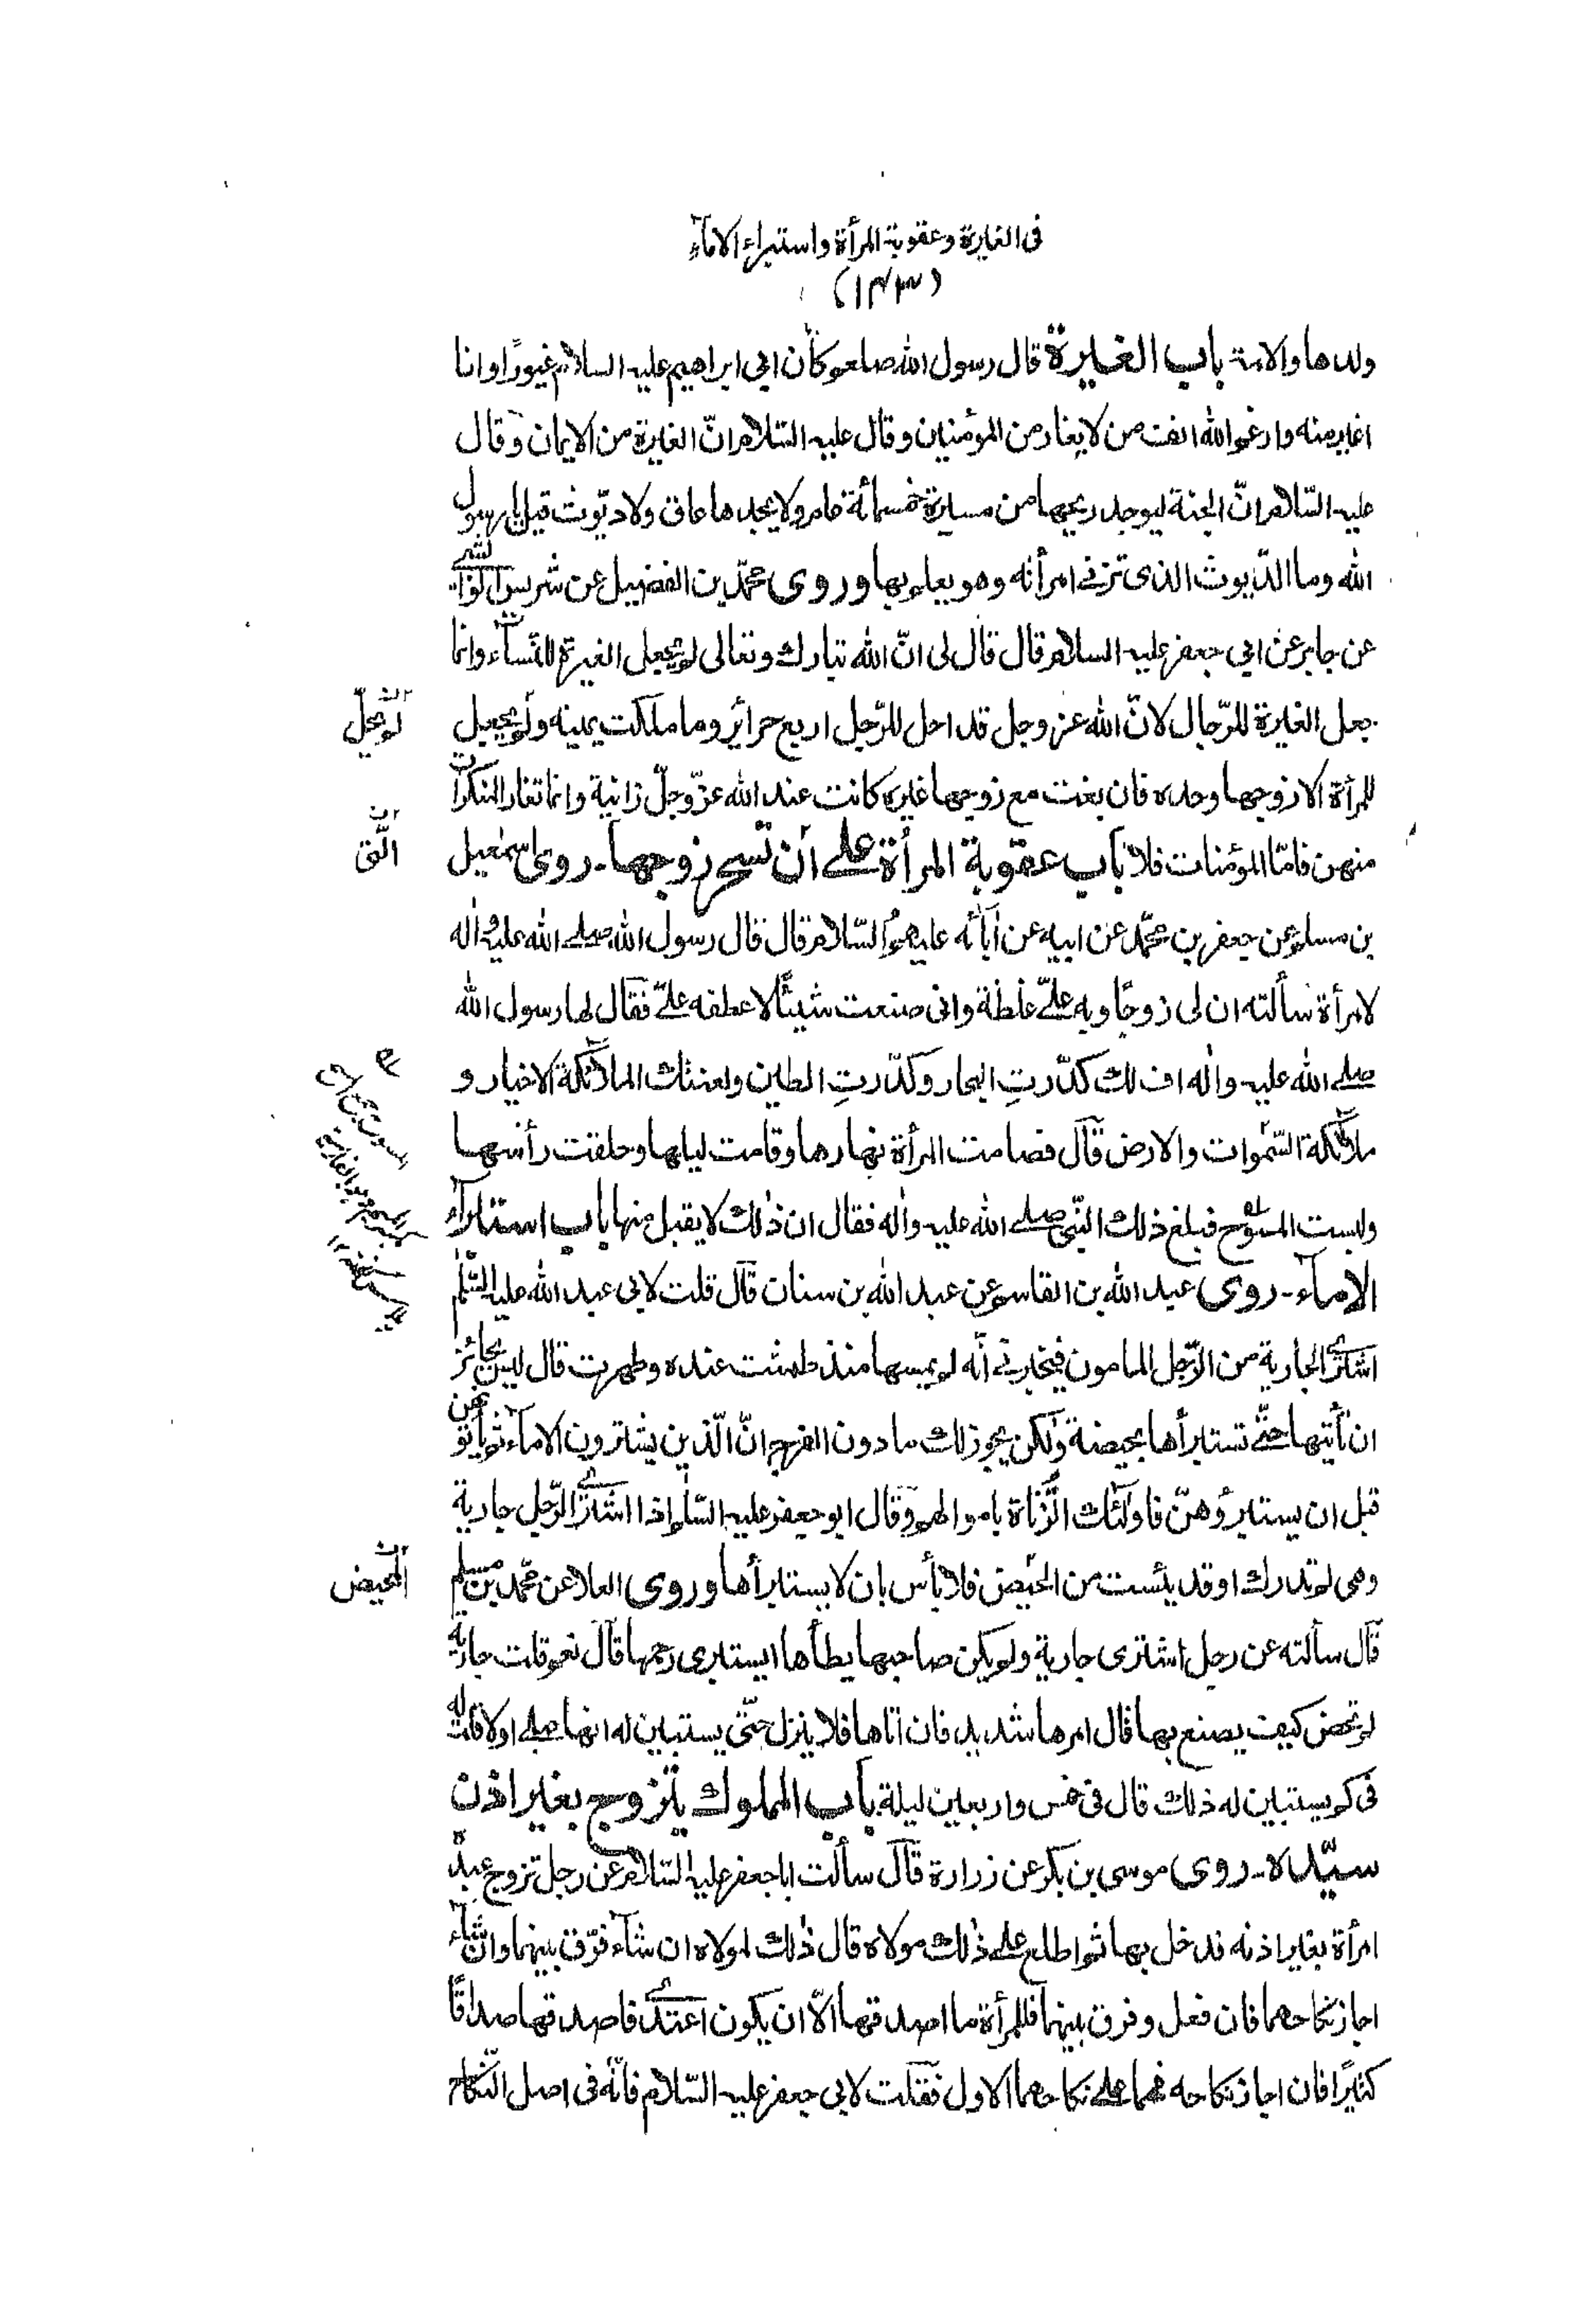 فى الغيرة وعقوبة المرأة واستبراء الامآء
(١٤٣)
ولدها والامة باب الغيرة قال رسول الله صلعم كان ابى ابراهيم عليه السلام غيورًا وانا
اغير منه وارغم الله انف من لا يغار من المؤمنين وقال عليه السّلام انّ الغيرة من الايمان وقال
عليه السّلام انّ الجنة ليوجد ريحها من مسيرة خمسمائة عام ولا يجدها عاق ولا ديّوث قيل يا رسول
الله وما الدّيوث الذى تزنى امرأته وهو يعلم بها وروى محمّد بن الفضيل عن شريس الوابشى
عن جابر عن ابى جعفر عليه السلام قال قال لى انّ الله تبارك وتعالى لم يجعل الغيرة للنّسآء وانما
جعل الغيرة للرّجال لانّ الله عز وجل قد احل للرّجل اربع حرائر وما ملكت يمينه ولم يجعل
لم يحلّ
للمرأة الا زوجها وحده فان بغت مع زوجها غيره كانت عند الله عزّ وجلّ زانية وانما تغار المنكرات
منهن فامّا المؤمنات فلا باب عقوبة المرأة على ان تسحر زوجها۔ روى اسمٰعيل
بن مسلم عن جعفر بن محمّد عن ابيه عن اٰبائه عليهم السّلام قال قال رسول الله صلى الله عليه واٰله
لامرأة سألته ان لى زوجًا وبه علىّ غلظة وانى صنعت شيئًا لاعطفه علىّ فقال لها رسول الله
صلى الله عليه واٰله اف لك كدّرتِ البحار وكدّرتِ الطين ولعنتك الملائكة الاخيار و
ملائكة السّمٰوات والارض قال فصامت المرأة نهارها وقامت ليلها وحلقت رأسها
ولبست المسوح فبلغ ذلك النّبىّ صلى الله عليه واٰله فقال ان ذٰلك لا يقبل منها باب استبرآء
الامآء۔ روى عبد الله بن القاسم عن عبد الله بن سنان قال قلت لابى عبد الله عليه السّلام
اشترى الجارية من الرّجل المامون فيخبرنى انّه لم يمسها منذ طمثت عنده وطهرت قال ليس بجائز
ان تأتيها حتّى تستبرأها بحيضة ولكن يجوز لك ما دون الفرج انّ الّذين يشترون الامآء ثم ياتوهن
قبل ان يستبرؤهنّ فاولئك الزّناة باموالهم وقال ابو جعفر عليه السّلام اذا اشترى الرّجل جارية
وهى لم تدرك او قد يئست من الحيض فلا بأس بان لا يستبرأها وروى العلا عن محمّد بن مسلم
المحيض
قال سألته عن رجل اشترى جارية ولم يكن صاحبها يطأها ايستبرى رحمها قال نعم قلت جارية
لم تحض كيف يصنع بها قال امرها شديد فان اتاها فلا ينزل حتّى يستبين له انها حبلى او لا قلت له
فى كم يستبين له ذلك قال فى خمس واربعين ليلة باب المملوك يتزوج بغير اذن
سيّده۔ روى موسى بن بكر عن زرارة قال سألت ابا جعفر عليه السّلام عن رجل تزوج عبده
امرأة بغير اذنه فدخل بها ثم اطلع على ذٰلك مولاه قال ذٰلك لمولاه ان شآء فرّق بينهما وان شآء
اجاز نكاحهما فان فعل وفرق بينهما فللمرأة ما اصدقها الّا ان يكون اعتدى فاصدقها صداقًا
كثيرًا فان اجاز نكاحه فهما على نكاحهما الاول فقلت لابى جعفر عليه السّلام فانّه فى اصل النّكاح